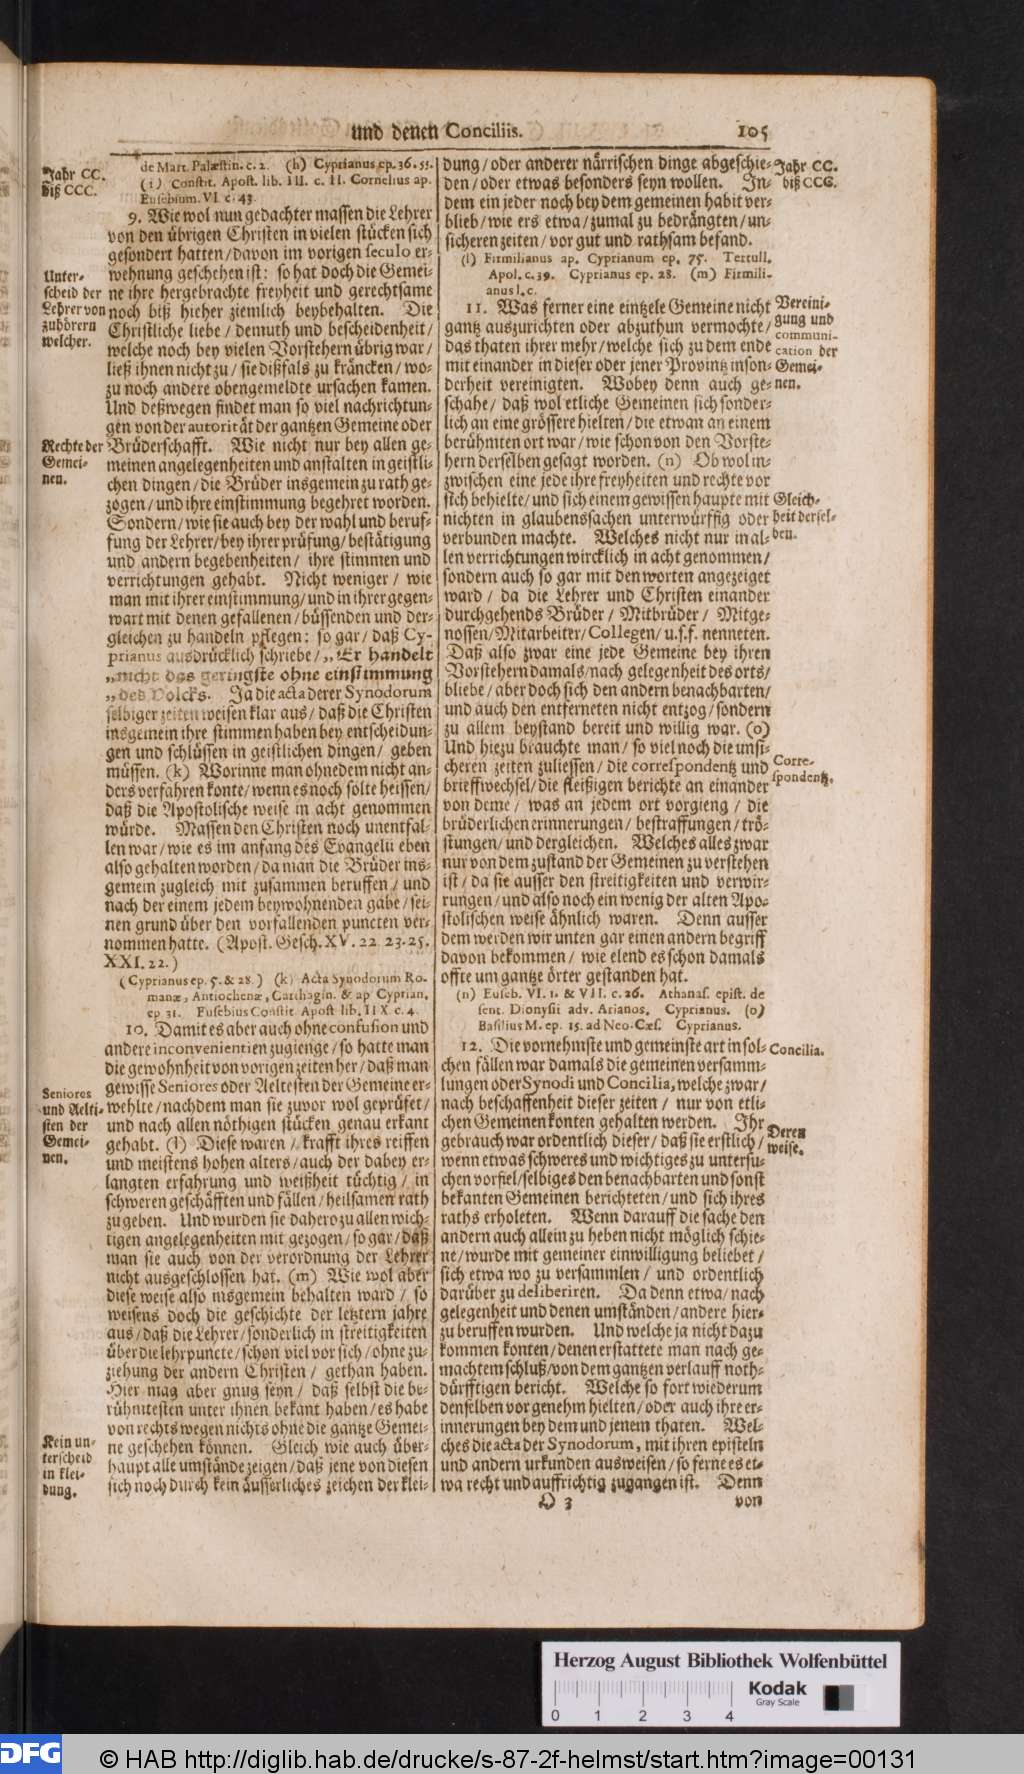 und denen Conciliis. 105
Jahr CC.
biß CCC.
de Mart. Palæstin. c. 2. (h) Cyprianus ep. 36. 55.
(i) Constit. Apost. lib. III. c. II. Cornelius ap.
Eusebium. VI. c. 43.
9. Wie wol nun gedachter massen die Lehrer
von den übrigen Christen in vielen stücken sich
gesondert hatten/davon im vorigen seculo er-
wehnung geschehen ist: so hat doch die Gemei-
Unter-
scheid der
Lehrer von
zuhörern
welcher.
ne ihre hergebrachte freyheit und gerechtsame
noch biß hieher ziemlich beybehalten. Die
Christliche liebe/demuth und bescheidenheit/
welche noch bey vielen Vorstehern übrig war/
ließ ihnen nicht zu/sie dißfals zu kräncken/wo-
zu noch andere obengemeldte ursachen kamen.
Und deßwegen findet man so viel nachrichtun-
gen von der autorität der gantzen Gemeine oder
Rechte der
Gemei-
nen.
Brüderschafft. Wie nicht nur bey allen ge-
meinen angelegenheiten und anstalten in geistli-
chen dingen/die Brüder insgemein zu rath ge-
zogen/und ihre einstimmung begehret worden.
Sondern/wie sie auch bey der wahl und beruf-
fung der Lehrer/bey ihrer prüfung/bestätigung
und andern begebenheiten/ ihre stimmen und
verrichtungen gehabt. Nicht weniger/ wie
man mit ihrer einstimmung/und in ihrer gegen-
wart mit denen gefallenen/büssenden und der-
gleichen zu handeln pflegen: so gar/daß Cy-
prianus ausdrücklich schriebe/„Er handelt
„nicht das geringste ohne einstimmung
„des Volcks. Ja die acta derer Synodorum
selbiger zeiten weisen klar aus/daß die Christen
insgemein ihre stimmen haben bey entscheidun-
gen und schlüssen in geistlichen dingen/ geben
müssen. (k) Worinne man ohnedem nicht an-
ders verfahren konte/wenn es noch solte heissen/
daß die Apostolische weise in acht genommen
würde. Massen den Christen noch unentfal-
len war/wie es im anfang des Evangelii eben
also gehalten worden/da man die Brüder ins-
gemein zugleich mit zusammen beruffen/und
nach der einem jedem beywohnenden gabe/sei-
nen grund über den vorfallenden puncten ver-
nommen hatte. (Apost. Gesch. XV. 22. 23. 25.
XXI. 22.)
(Cyprianus ep. 5. & 28.) (k) Acta Synodorum Ro-
manæ, Antiochenæ, Carthagin. & ap Cyprian.
ep 31. Eusebius Constit Apost lib. IIX c. 4.
10. Damit es aber auch ohne confusion und
andere inconvenientien zugienge/so hatte man
die gewohnheit von vorigen zeiten her/daß man
Seniores
und Aelti-
sten der
Gemei-
nen.
gewisse Seniores oder Aeltesten der Gemeine er-
wehlte/nachdem man sie zuvor wol geprüfet/
und nach allen nöthigen stücken genau erkant
gehabt. (l) Diese waren/ krafft ihres reiffen
und meistens hohen alters/auch der dabey er-
langten erfahrung und weißheit tüchtig/ in
schweren geschäfften und fällen/heilsamen rath
zu geben. Und wurden sie dahero zu allen wich-
tigen angelegenheiten mit gezogen/so gar/daß
man sie auch von der verordnung der Lehrer
nicht ausgeschlossen hat. (m) Wie wol aber
diese weise also insgemein behalten ward/ so
weisens doch die geschichte der letztern jahre
aus/daß die Lehrer/sonderlich in streitigkeiten
über die lehrpuncte/schon viel vor sich/ohne zu-
ziehung der andern Christen/ gethan haben.
Hier mag aber gnug seyn/ daß selbst die be-
rühmtesten unter ihnen bekant haben/es habe
von rechts wegen nichts ohne die gantze Gemei-
Kein un-
terscheid
in klei-
dung.
ne geschehen können. Gleich wie auch über-
haupt alle umstände zeigen/daß jene von diesen
sich noch durch kein äusserliches zeichen der klei-
dung/oder anderer närrischen dinge abgeschie-
den/oder etwas besonders seyn wollen. In-
dem ein jeder noch bey dem gemeinen habit ver-
blieb/wie ers etwa/zumal zu bedrängten/un-
sicheren zeiten/vor gut und rathsam befand.
Jahr CC.
biß CCC.
(l) Firmilianus ap. Cyprianum ep. 75. Tertull.
Apol. c. 39. Cyprianus ep. 28. (m) Firmili-
anus l. c.
11. Was ferner eine eintzele Gemeine nicht
gantz auszurichten oder abzuthun vermochte/
das thaten ihrer mehr/welche sich zu dem ende
mit einander in dieser oder jener Provintz inson-
derheit vereinigten. Wobey denn auch ge-
Vereini-
gung und
communi-
cation der
Gemei-
nen.
schahe/ daß wol etliche Gemeinen sich sonder-
lich an eine grössere hielten/die etwan an einem
berühmten ort war/wie schon von den Vorste-
hern derselben gesagt worden. (n) Ob wol in-
zwischen eine jede ihre freyheiten und rechte vor
sich behielte/und sich einem gewissen haupte mit
nichten in glaubenssachen unterwürffig oder
verbunden machte. Welches nicht nur in al-
Gleich-
heit dersel-
ben.
len verrichtungen wircklich in acht genommen/
sondern auch so gar mit den worten angezeiget
ward/ da die Lehrer und Christen einander
durchgehends Brüder/ Mitbrüder/ Mitge-
nossen/Mitarbeiter/Collegen/u.s.f. nenneten.
Daß also zwar eine jede Gemeine bey ihren
Vorstehern damals/nach gelegenheit des orts/
bliebe/aber doch sich den andern benachbarten/
und auch den entferneten nicht entzog/sondern
zu allem beystand bereit und willig war. (o)
Und hiezu brauchte man/so viel noch die unsi-
cheren zeiten zuliessen/die correspondentz und
Corre-
spondentz.
brieffwechsel/die fleißigen berichte an einander
von deme/ was an jedem ort vorgieng/ die
brüderlichen erinnerungen/bestraffungen/trö-
stungen/und dergleichen. Welches alles zwar
nur von dem zustand der Gemeinen zu verstehen
ist/da sie ausser den streitigkeiten und verwir-
rungen/und also noch ein wenig der alten Apo-
stolischen weise ähnlich waren. Denn ausser
dem werden wir unten gar einen andern begriff
davon bekommen/ wie elend es schon damals
offte um gantze örter gestanden hat.
(n) Euseb. VI. 1. & VII. c. 26. Athanas. epist. de
sent. Dionysii adv. Arianos. Cyprianus. (o)
Basilius M. ep. 15. ad Neo-Cæs. Cyprianus.
12. Die vornehmste und gemeinste art in sol-
Concilia.
chen fällen war damals die gemeinen versamm-
lungen oder Synodi und Concilia, welche zwar/
nach beschaffenheit dieser zeiten/ nur von etli-
chen Gemeinen konten gehalten werden. Ihr
gebrauch war ordentlich dieser/daß sie erstlich/
Deren
weise.
wenn etwas schweres und wichtiges zu untersu-
chen vorfiel/selbiges den benachbarten und sonst
bekanten Gemeinen berichteten/und sich ihres
raths erholeten. Wenn darauff die sache den
andern auch allein zu heben nicht möglich schie-
ne/wurde mit gemeiner einwilligung beliebet/
sich etwa wo zu versammlen/ und ordentlich
darüber zu deliberiren. Da denn etwa/nach
gelegenheit und denen umständen/andere hier-
zu beruffen wurden. Und welche ja nicht dazu
kommen konten/denen erstattete man nach ge-
machtem schluß/von dem gantzen verlauff noth-
dürfftigen bericht. Welche so fort wiederum
denselben vor genehm hielten/oder auch ihre er-
innerungen bey dem und jenem thaten. Wel-
ches die acta der Synodorum, mit ihren episteln
und andern urkunden ausweisen/so ferne es et-
wa recht und auffrichtig zugangen ist. Denn
O 3 von
Herzog August Bibliothek Wolfenbüttel
Kodak
Gray Scale
0 1 2 3 4
DFG © HAB http://diglib.hab.de/drucke/s-87-2f-helmst/start.htm?image=00131